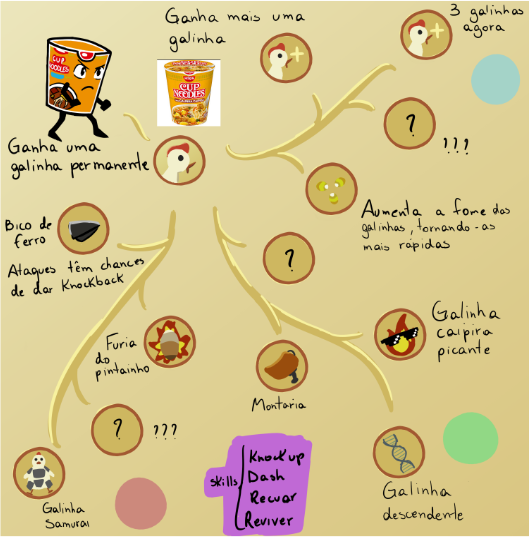 Ganha mais uma
galinha
3 galinhas
agora
CUP
NOODLES
NISSIN
CUP
NOODLES
Ganha uma
galinha permanente
?
???
Aumenta a fome das
galinhas, tornando-as
mais rápidas
Bico de
ferro
Ataques têm chances
de dar Knockback
?
Galinha
caipira
picante
Furia
do
pintainho
Montaria
? ???
Galinha
Samurai
Skills
Knockup
Dash
Recuar
Reviver
Galinha
descendente